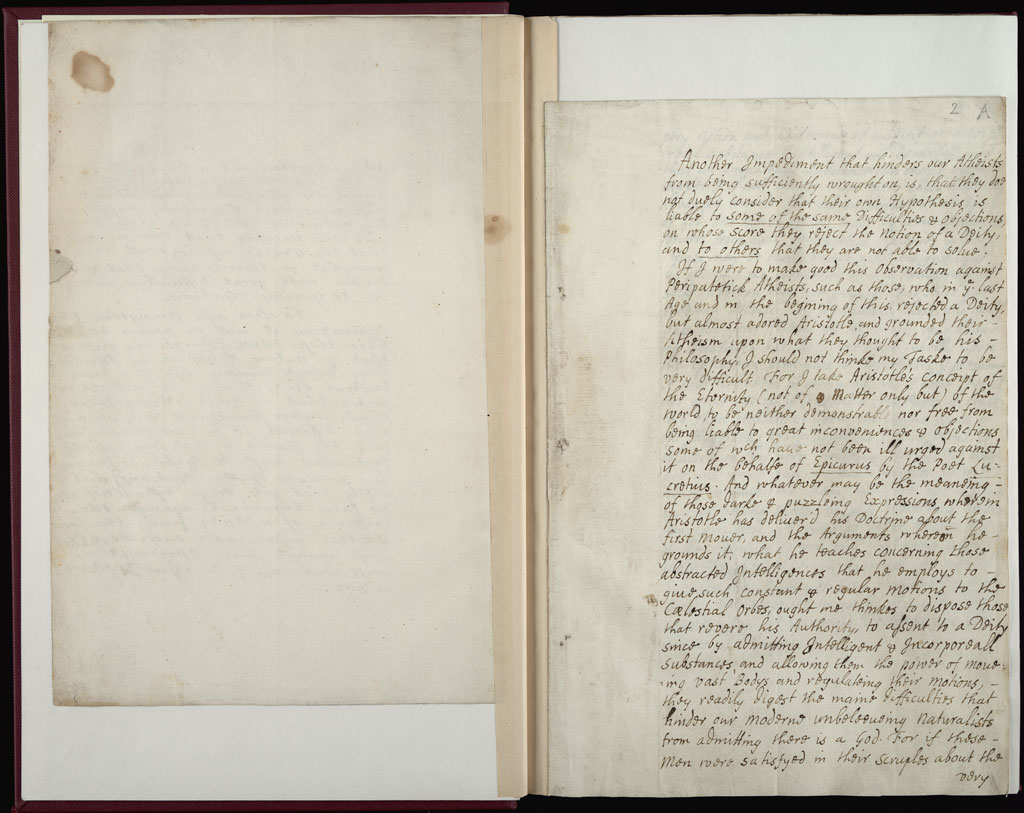 2 A
Another Impediment that hinders our Atheists
from being sufficiently wrought on, is, that they doe
not duely consider that their own Hypothesis is
liable to some of the same Difficulties & objections
on whose score they reject the notion of a Deity,
and to others that they are not able to solve.
If I were to make good this Observation against
Peripatetick Atheists, such as those, who in ye last
Age and in the begining of this, rejected a Deity,
but almost adored Aristotle, and grounded their -
Atheism upon what they thought to be his -
Philosophy, I should not thinke my Taske to be
very difficult. For I take Aristotle's conceipt of
the Eternity (not of Matter only but) of the
world, to be neither demonstrable nor free from
being liable to great inconveniences & objections
some of wch have not been ill urged against
it on the behalfe of Epicurus by the Poet Lu-
cretius. And whatever may be the meaneing -
of those darke & puzzleing Expressions, wherein
Aristotle has deliver'd his Doctrine about the
first mover, and the Arguments wherein he -
grounds it; what he teaches concerning those
abstracted Intelligences that he employs to -
give such constant & regular motions to the
Cælestial Orbes, ought me thinkes to dispose those
that revere his Authority, to assent to a Deity
since by admitting Intelligent & Incorporeall
substances, and allowing them the power of move-
-ing vast Bodys and regulateing their motions, -
they readily digest the maine difficulties that
hinder our moderne unbeleeveing naturalists
from admitting there is a God. For if these -
Men were satisfyed in their scruples about the
very